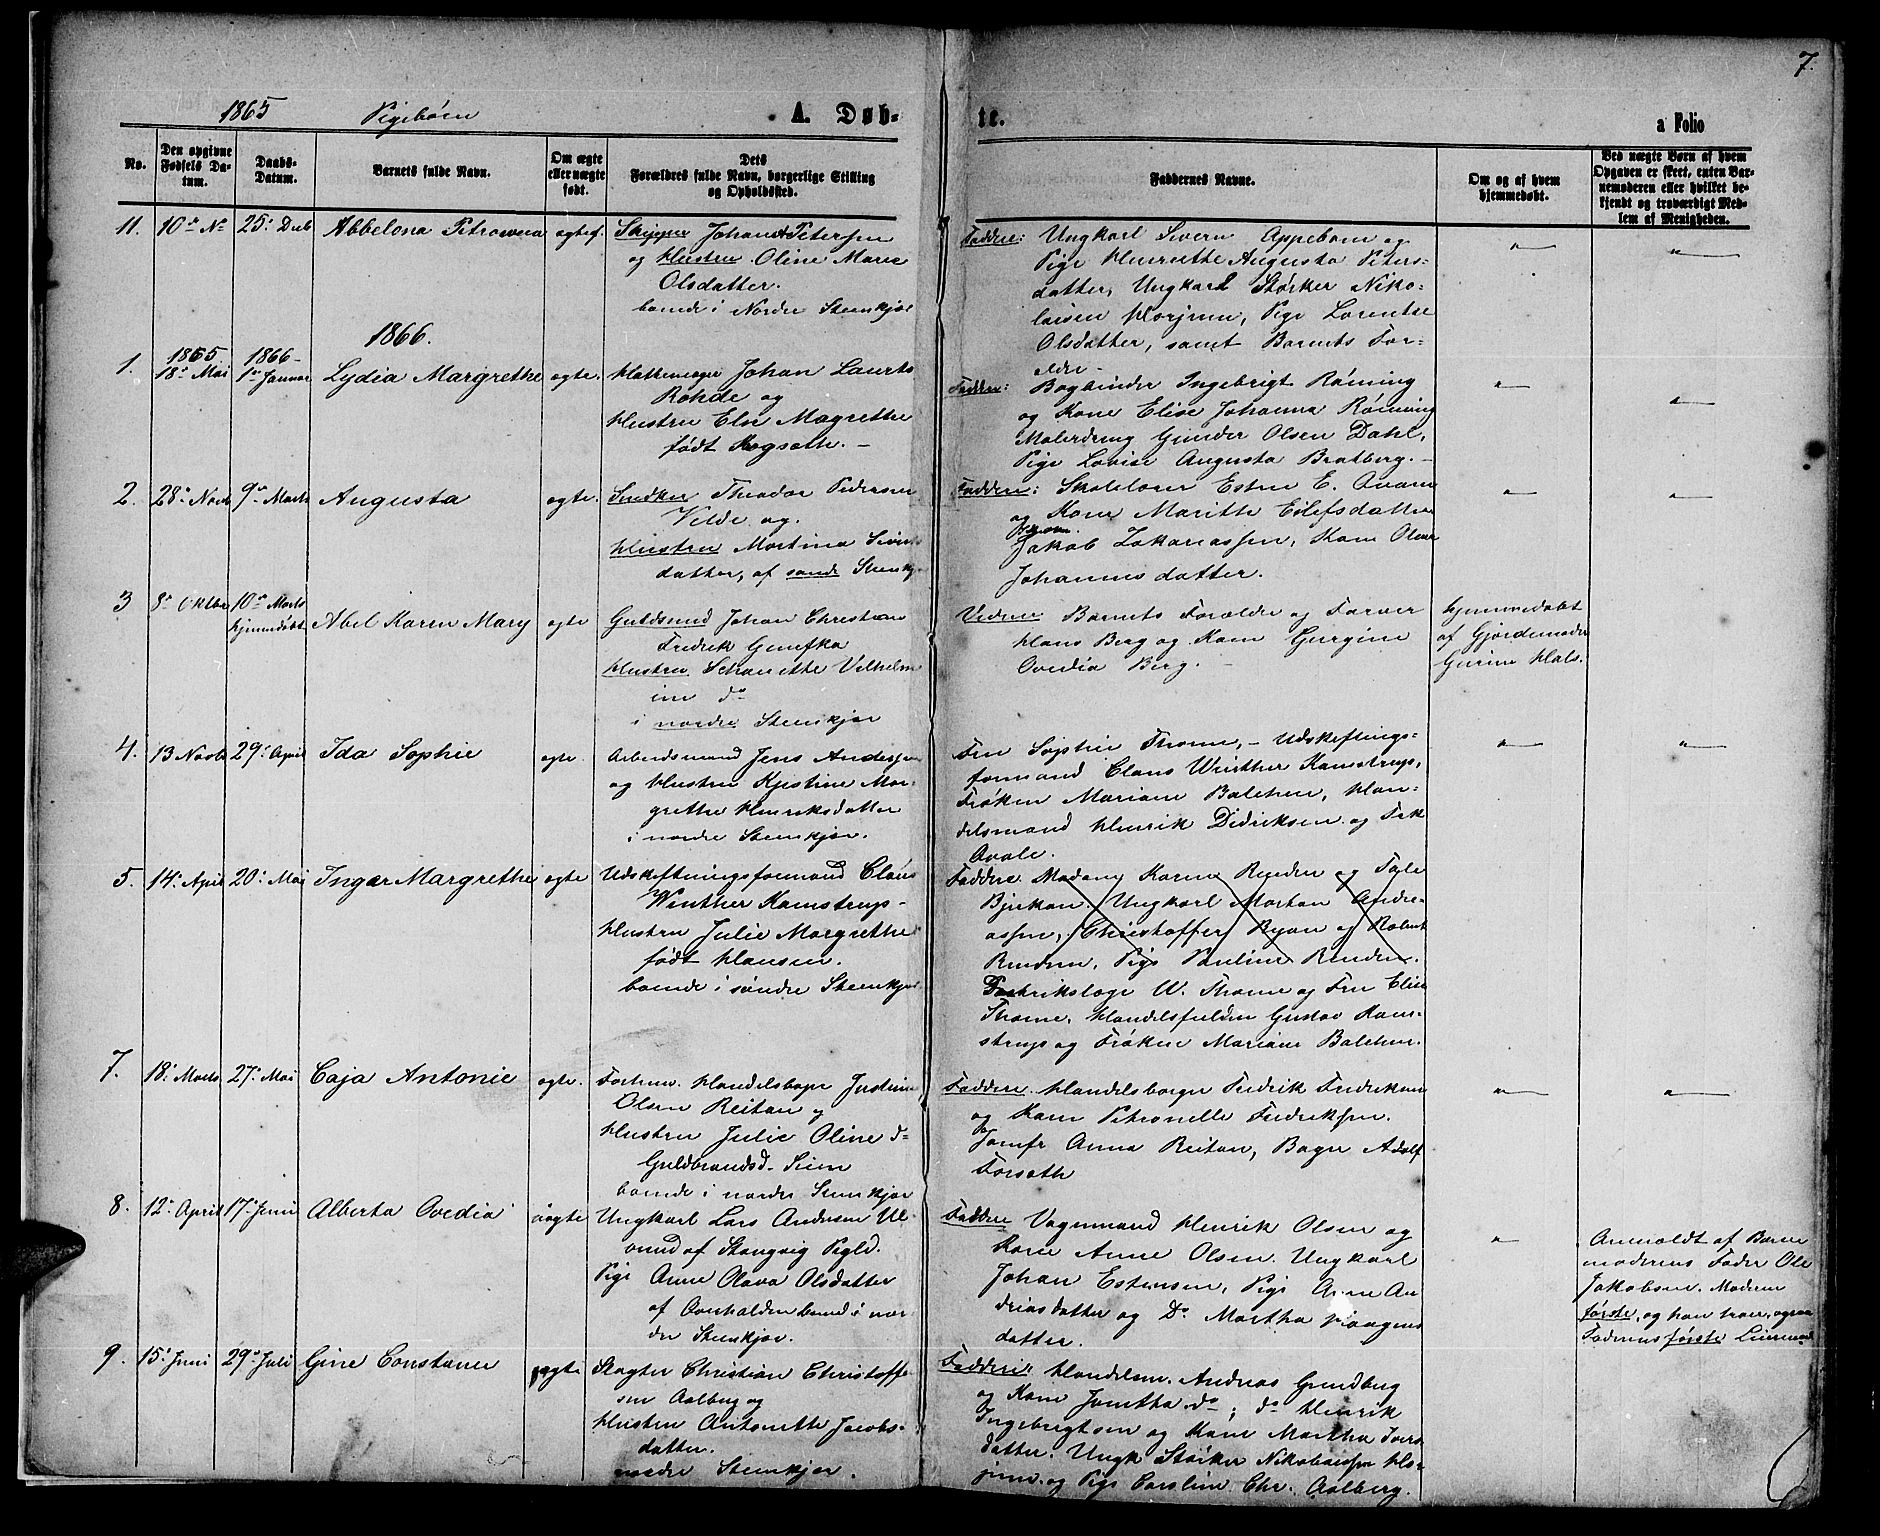 7.
1865 Pigebørn A. Døb-
te.
a Folio
No.
Den opgivne
Fødsels Da-
tum.
Daabs-
Datum.
Barnets fulde Navn.
Om ægte
eller uægte
født.
Dets
Forældres fulde Navn, borgerlige Stilling
og Opholdssted.
Faddernes Navne.
Om og af hvem
hjemmedøbt.
Ved uægte Børn af hvem
Opgaven er skeet, enten Bar-
nemoderen eller hvilket be-
kjendt og troværdigt Med-
lem af Menigheden.
11. 10de 25 Abbelona
Skipper Johan Petersen
og Hustru Oline Marie
Olsdatter.
boende i Nordre Steenkjær
Faddere: Ungkarl Severn Appeborn og
Pige Henriette Augusta Peters-
datter, Ungkarl Størker Niko-
laisen Pige Lorentse
Olsdatter, samt Barnets For-
ældre -
1866.
1. 1865 1866
18de Mai 1ste Januar Lydia Margrethe ægte.
Johan Laurts
Rohde og
Hustru Else Magrethe
født
Faddere: Bogbinder Ingebrigt Røining
og Kone Elise Johanna Røining
Malerdreng Gunder Olsen Dahl,
Pige Lovise Augusta Bratberg. -
2. 28de Novb 9de Marts Augusta ægte.
Snedker Theodor Pedersen
Velde og
Hustru Martina
datter, af søndre Steenkj.
Faddere: Skolelærer Esten E.
og Kone Maritte Eilefsdatter
Jakob Zakariassen, Kone
Johannesdatter.
3 8de Oktbr 10de Marts
hjemmedøbt Abel Karen Mary ægte
Guldsmed Johan Christian
Fredrik Genefka
Hustru Vilhelm
ine do
i nordre Steenkjær
Vidne Barnets Forældre og Farver
Hans Berg og Kone Gurgine
Ovedia Berg. -
hjemmedøbt
af Gjordemoder
Gurine Hals.
4. 13 Novb 29de April Ida Sophie ægte.
Arbeidsmand Jens Andersen
og Hustru Kjestine Mar-
grethe Henriksdatter
i nordre Steenkjær.
Fru Sophie Thorne, - Udskiftnings-
formand Claus Winther Kamstrup,
Frøken Mariane Balchen, Han-
delsmand Henrik Didriksen og Frk
5. 14 April 20 Mai Ingar Margrethe ægte
Udskiftningsformand Claus
Winther Kamstrup-
Hustru Julie Margrethe
født Hansen.
boende i søndre Steenkjær
Faddere Madam Karen og
Ungkarl Morten Andre-
assen, Christoffer Ryan og Robert
Pige Pauline
W. Thorne og Fru Elise
Thorne, Gustav Kam-
strup og Frøken Mariane Balchen.
7. 18 Marts 27de Mai Caja Antonie ægte.
Justin
Olsen Reitan og
Hustru Julie Oline
Guldbrandsd.
boende i nordre Steenkjær
Faddere. Handelsborger Fredrik Fredriksen
og Kone Petronelle Fredriksen.
Jomfr Anna Reitan, Bager Adolf
Forsæth
8. 12 April 17de Juni Alberta Ovedia uægte
Ungkarl Lars Andersen
af Stangvig Pigld.
Pige Anne Olava Olsdatter
af Overhalden boende i nor-
dre Steenkjær.
Faddere Vognmand Henrik Olsen og
Kone Anne Olsen. Ungkarl
Johan Estensen, Pige
datter og Do Martha
datter.
Anmeldt af Barne
moderens Fader Ole
Jakobsen. Moderens
første, og han troer, ogsaa
Faderens første Leiermaal
9. 15 Juni 29de Juli Gine Constanse ægte
Slagter Christian Christoffer-
sen Aalberg og
Hustru Antonette Jacobs-
datter.
nordre Steenkjær.
Faddere: Andreas Grundberg
og Kone do; do Henrik
Ingebrigtsen og Kone Martha Ivers-
datter. Ungk Størker Nikolaissen
og Pige Chr. Aalberg.